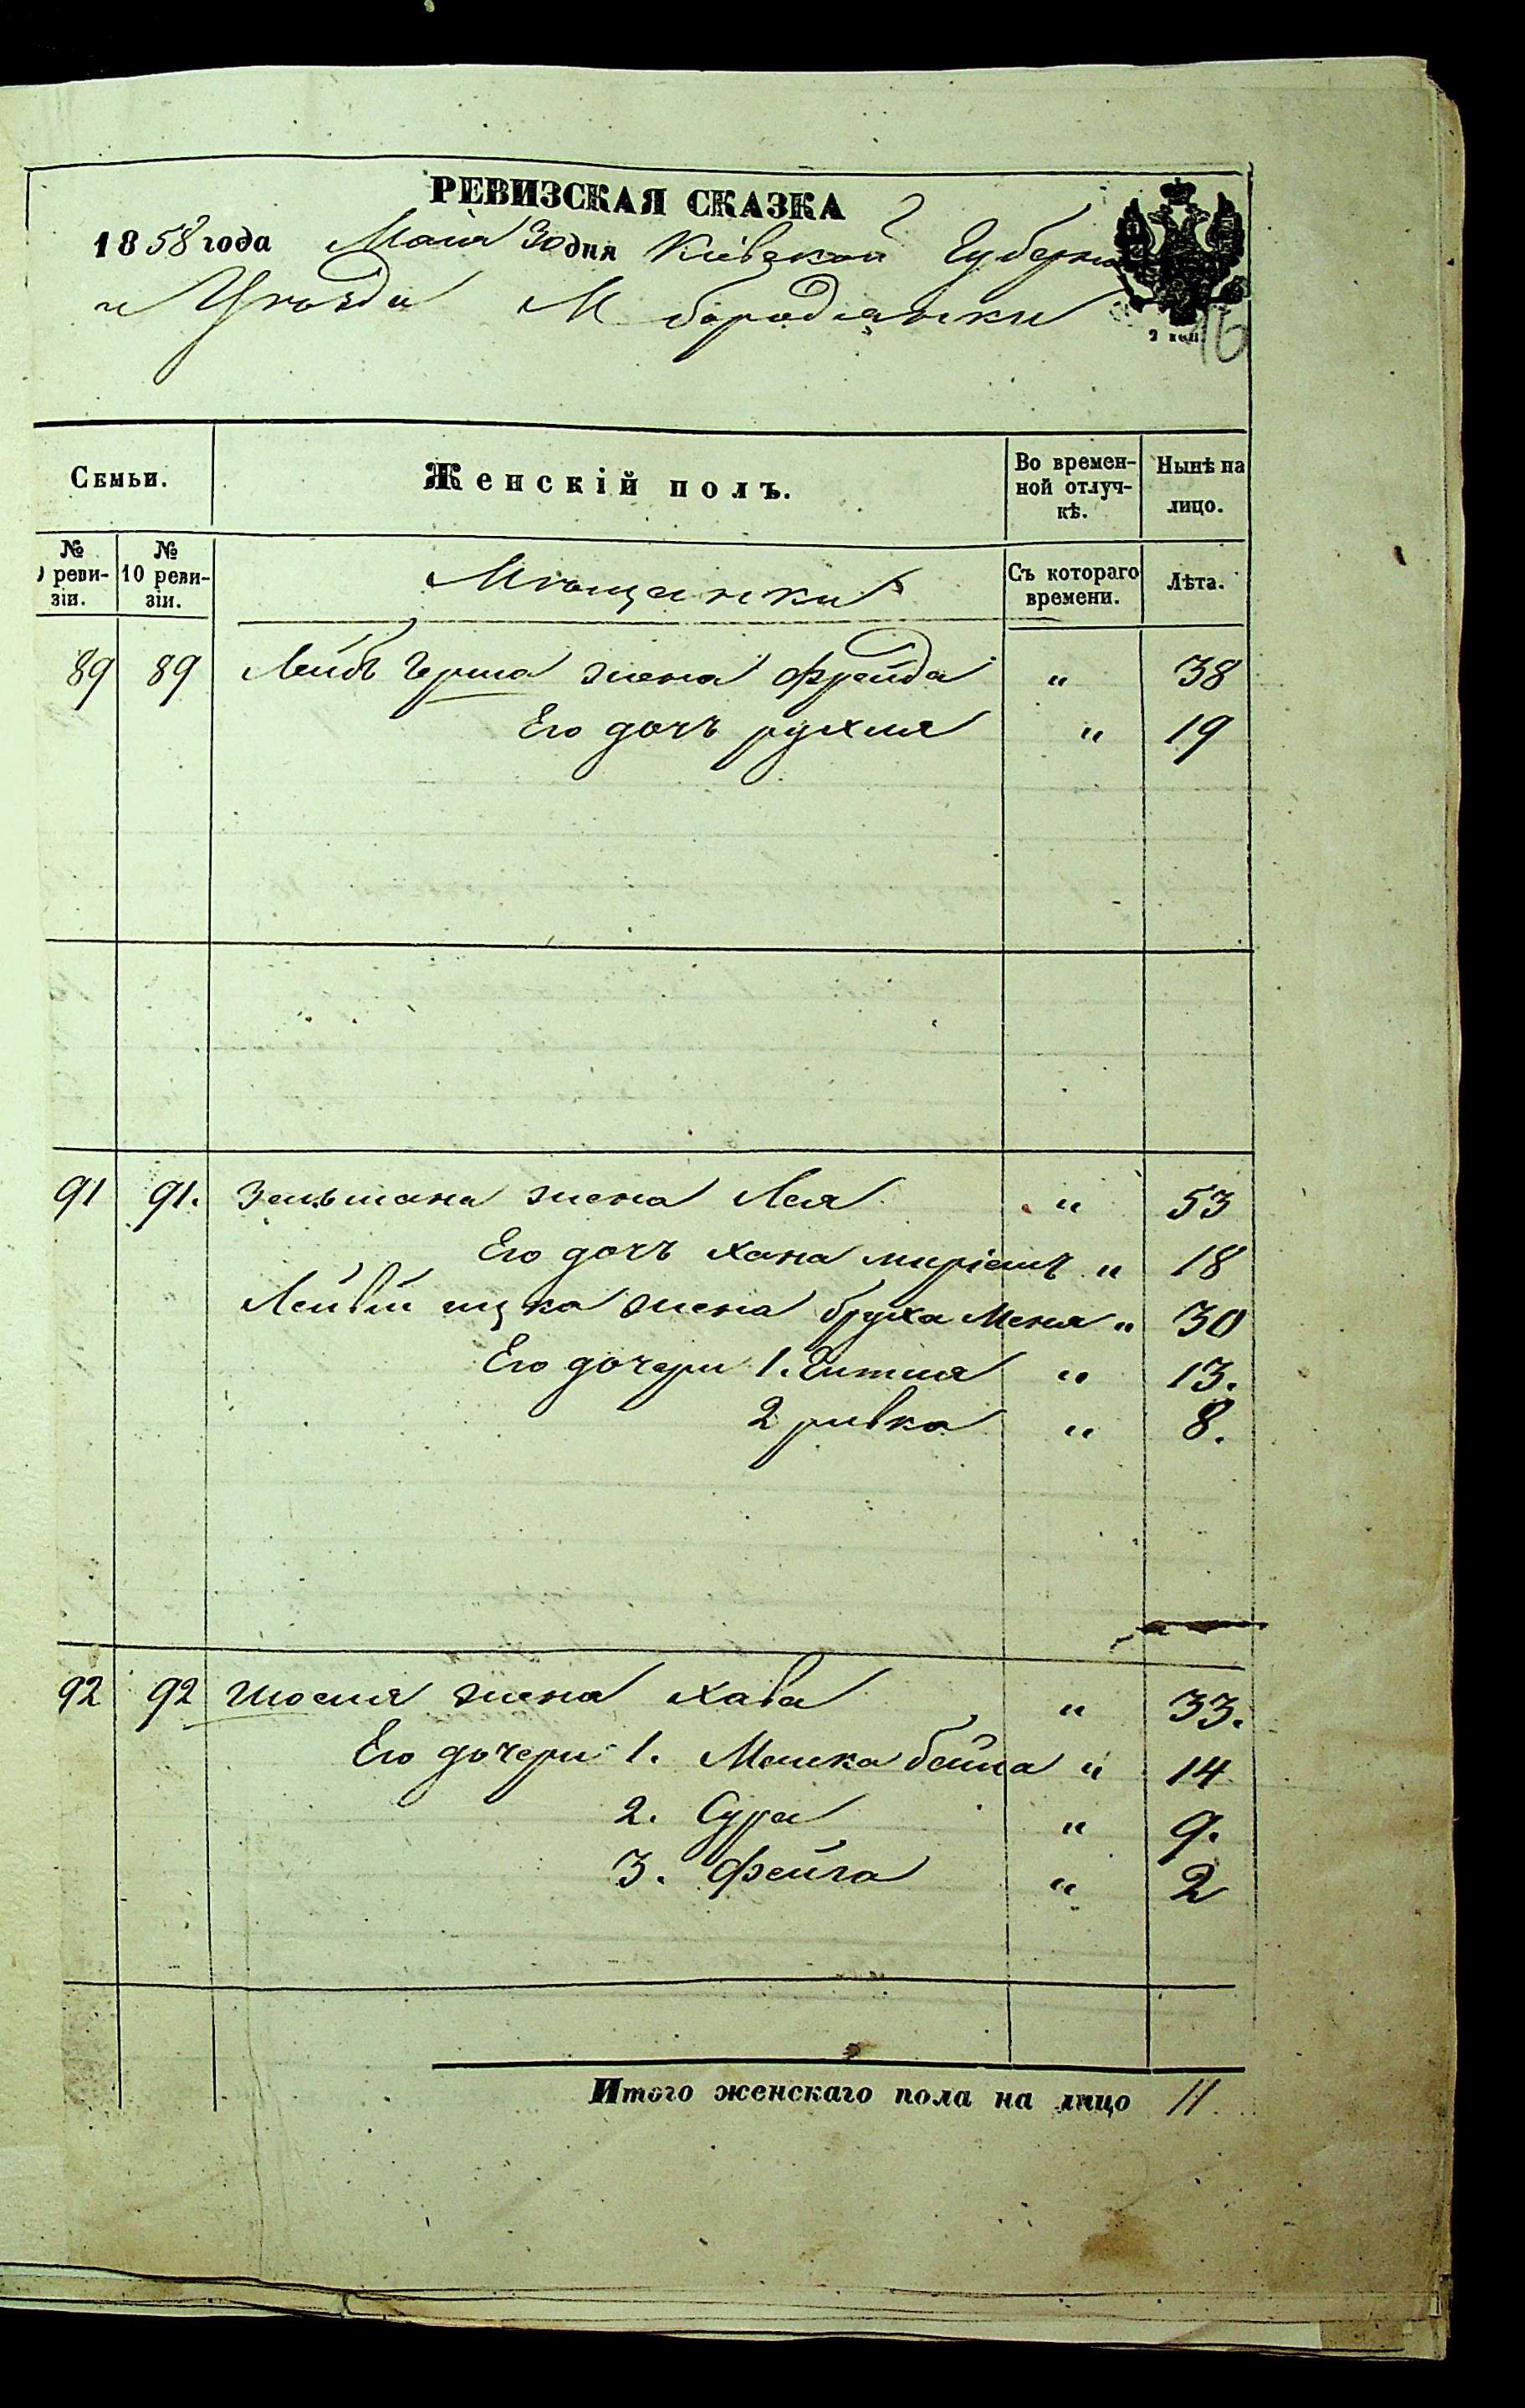 РЕВИЗСКАЯ СКАЗКА
1858 года Маія 30 дня Кіевской Губерніи
и Уѣзда М бородянки
2 коп. 16
Семьи. Женскій полъ. Во времен-ной отлуч-кѣ. Нынѣ на лицо.
№ реви-зіи. № 10 реви-зіи. Мѣщанки Съ котораго времени. Лѣта.
89 89 Лейбъ Герша жена Фрейда " 38
Его дочъ рухля " 19
91 91. Зельмана жена Лея " 53
Его дочъ хана миріамъ " 18
Лейвій ицка жена бруха Меня " 30
Его дочери 1. Гитля " 13.
2 ривка " 8.
92 92 жена хава " 33.
Его дочери 1. Малка бейла " 14
2. Сура " 9.
3. Фейга " 2
Итого женскаго пола на лицо 11.